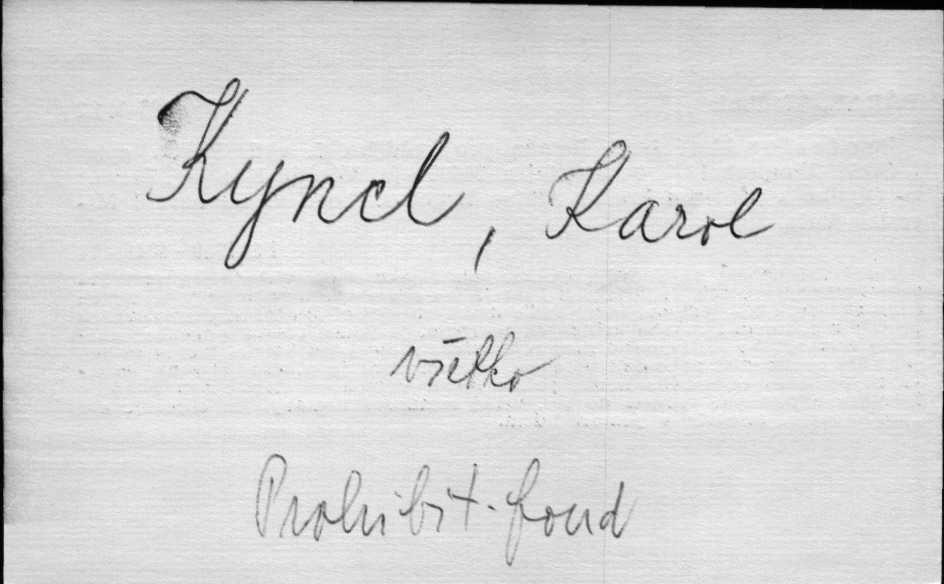 Kyncl, Karol
všetko
Prohibit. fond